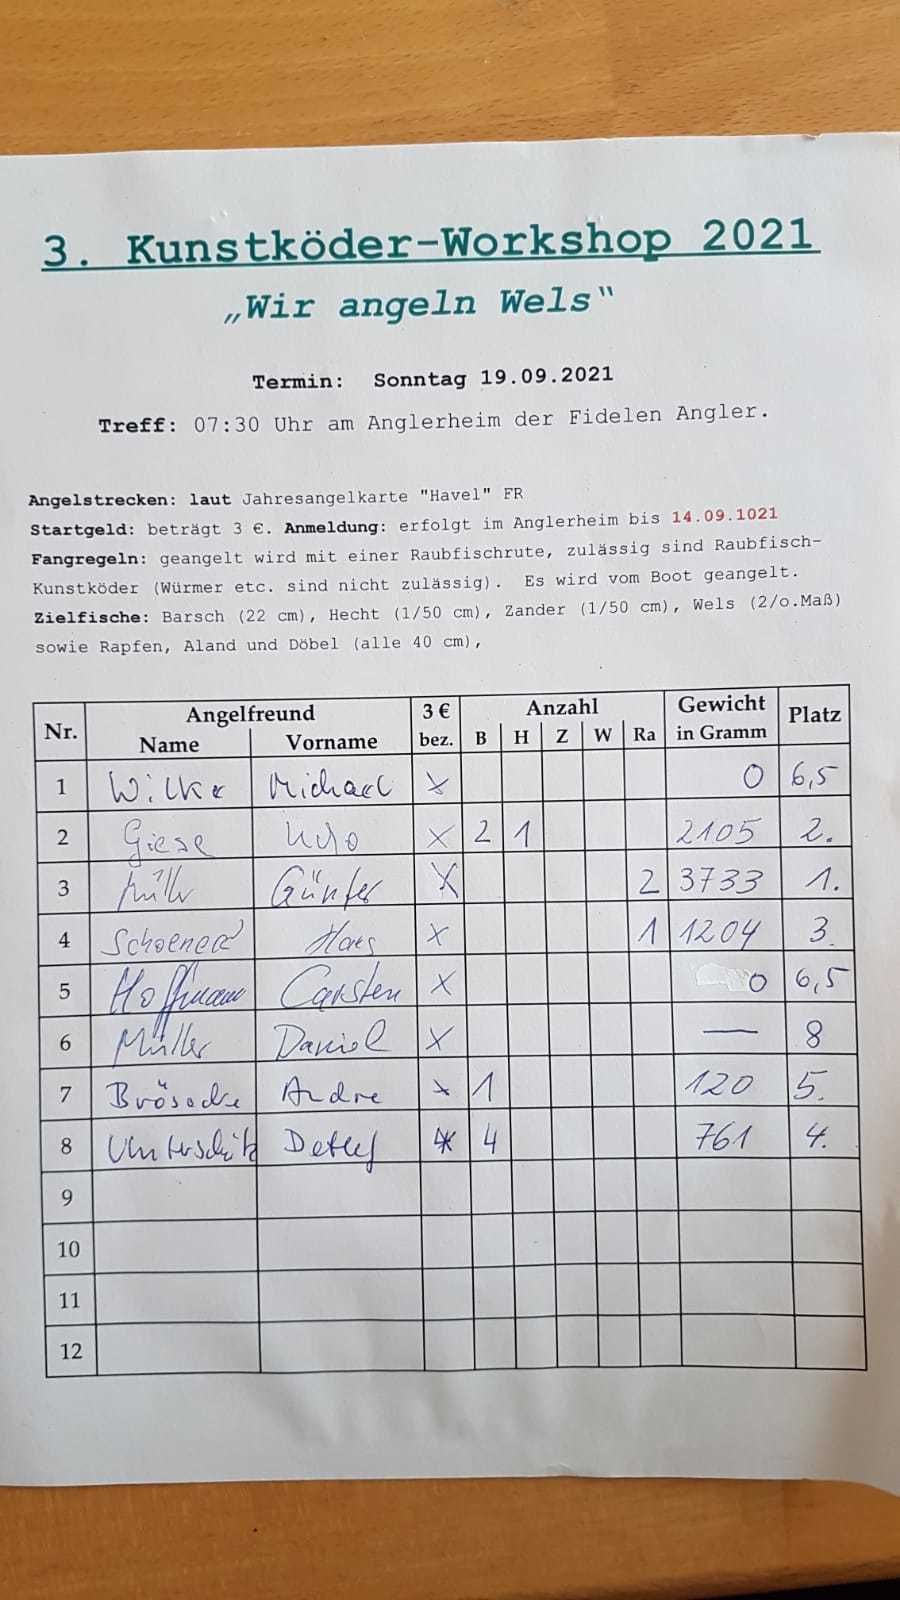 3. Kunstköder-Workshop 2021
„Wir angeln Wels“
Termin: Sonntag 19.09.2021
Treff: 07:30 Uhr am Anglerheim der Fidelen Angler.
Angelstrecken: laut Jahresangelkarte "Havel" FR
Startgeld: beträgt 3 €. Anmeldung: erfolgt im Anglerheim bis 14.09.1021
Fangregeln: geangelt wird mit einer Raubfischrute, zulässig sind Raubfisch-
Kunstköder (Würmer etc. sind nicht zulässig). Es wird vom Boot geangelt.
Zielfische: Barsch (22 cm), Hecht (1/50 cm), Zander (1/50 cm), Wels (2/o.Maß)
sowie Rapfen, Aland und Döbel (alle 40 cm),
Nr. Angelfreund 3 € Anzahl Gewicht Platz
Name Vorname bez. B H Z W Ra in Gramm
1 Wilke Michael x 0 6,5
2 Giese Udo x 2 1 2105 2.
3 Müller Günter x 2 3733 1.
4 x 1 1204 3.
5 Hoffmann Carsten x 0 6,5
6 Müller Daniel x — 8
7 Brösecke Andre x 1 120 5.
8 Unterschütz Detlef x 4 761 4.
9
10
11
12